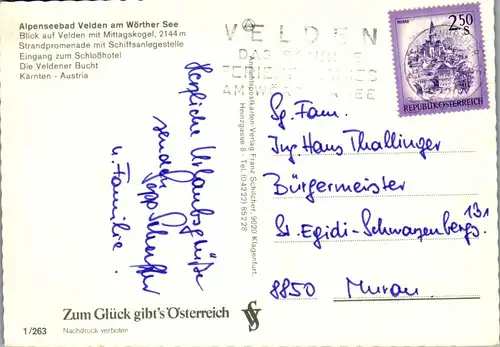 Alpenseebad Velden am Wörther See
Blick auf Velden mit Mittagskogel, 2144 m
Strandpromenade mit Schiffsanlegestelle
Eingang zum Schloßhotel
Die Veldener Bucht
Kärnten - Austria
VELDEN
AM WÖRTHER SEE
2.50
S
MURAU
REPUBLIK ÖSTERREICH
Herzliche Urlaubsgrüße
senden
u. Familie.
Ansichtspostkarten-Verlag Franz Schilcher, 9020 Klagenfurt,
Henzgasse 8 - Tel. (04222) 85228
Sg. Fam.
Ing. Hans Thallinger
Bürgermeister
St. Egidi-Schwarzenbergs. 131
8850 Murau
Zum Glück gibt's Österreich
1/263
Nachdruck verboten